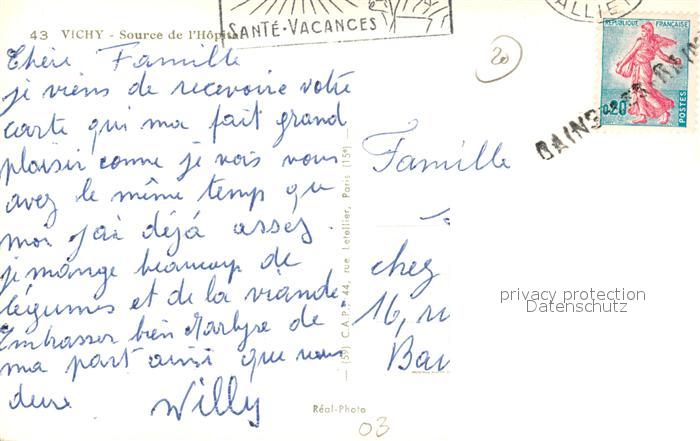 SANTÉ-VACANCES
ALLIE
RÉPUBLIQUE FRANÇAISE
0,20
POSTES
BAINS
43 VICHY - Source de l'Hôpital
20
Chère Famille
je viens de recevoire votre
carte qui ma fait grand
plaisir comne je vois vous
avez le même temp que
moi j'ai déjà asses.
je mange beaucoup de
légumes et de la viande
Embrasser bien Martyre de
ma part ainsi que vous
deux Willy
(59) C.A.P. 44, rue Letellier, Paris (15e)
Réal-Photo
03
Famille
chez
16, ru
Bai
privacy protection
Datenschutz